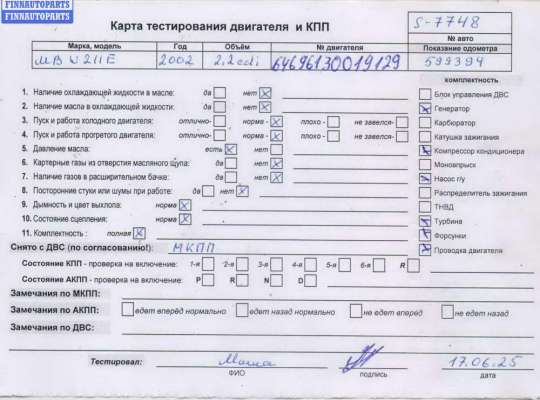 FINNAUTOPARTS
FINNAUTOPARTS
Карта тестирования двигателя и КПП
S-7748
№ авто
Марка, модель Год Объём № двигателя Показание одометра
MB W211E 2002 2,2cdi 64696130019129 599394
комплектность
1. Наличие охлаждающей жидкости в масле: да нет
Блок управления ДВС
2. Наличие масла в охлаждающей жидкости: да нет
Генератор
3. Пуск и работа холодного двигателя: отлично- норма - плохо - не завелся-
Карбюратор
4. Пуск и работа прогретого двигателя: отлично- норма - плохо - не завелся-
Катушка зажигания
5. Давление масла: есть нет
Компрессор кондиционера
6. Картерные газы из отверстия масляного щупа: да нет
Моновпрыск
7. Наличие газов в расширительном бачке: да нет
Насос г/у
8. Посторонние стуки или шумы при работе: да нет
Распределитель зажигания
9. Дымность и цвет выхлопа: норма
ТНВД
10. Состояние сцепления: норма
Турбина
11. Комплектность : полная
Форсунки
Снято с ДВС (по согласованию!): МКПП
Проводка двигателя
Состояние КПП - проверка на включение: 1-я 2-я 3-я 4-я 5-я 6-я R
Состояние АКПП - проверка на включение: P R N D
Замечания по МКПП:
Замечания по АКПП: едет вперёд нормально едет назад нормально не едет вперёд не едет назад
Замечания по ДВС:
Тестировал: 17.06.25
ФИО подпись дата